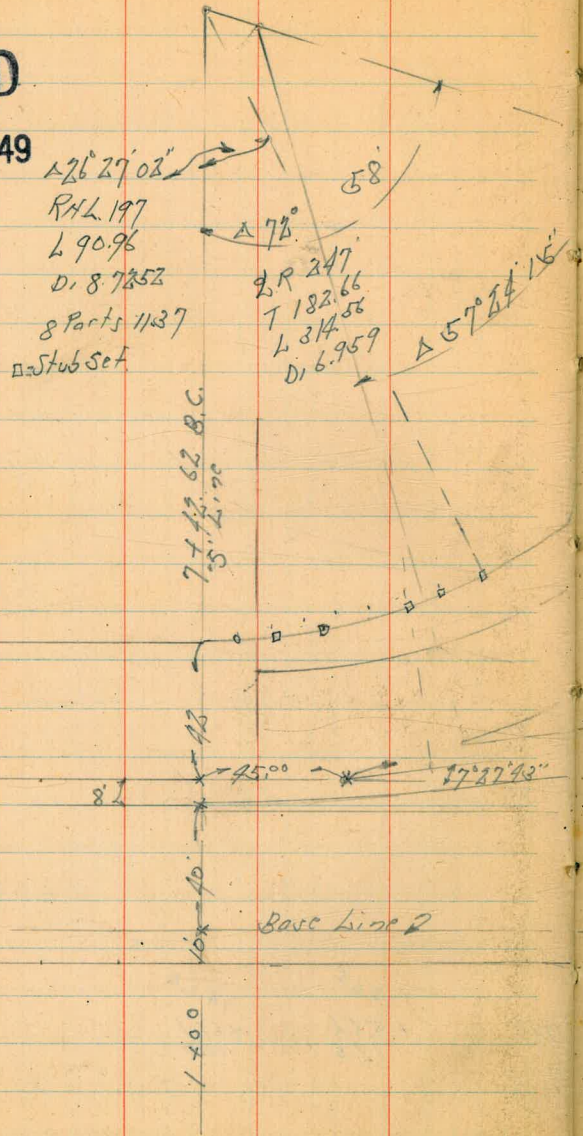 D
49
Δ26°27'02"
R.H.L. 197
L 90.96
D. 8.7252
8 Parts 11.37
□=Stub Set
58'
Δ 72°
R 247'
T 182.66
L 314.56
D. 6.959
Δ 57°24'15"
7+42.62 B.C.
5' Line
42
45.00
17°27'43"
8'
40'
10'
Base Line
1+00